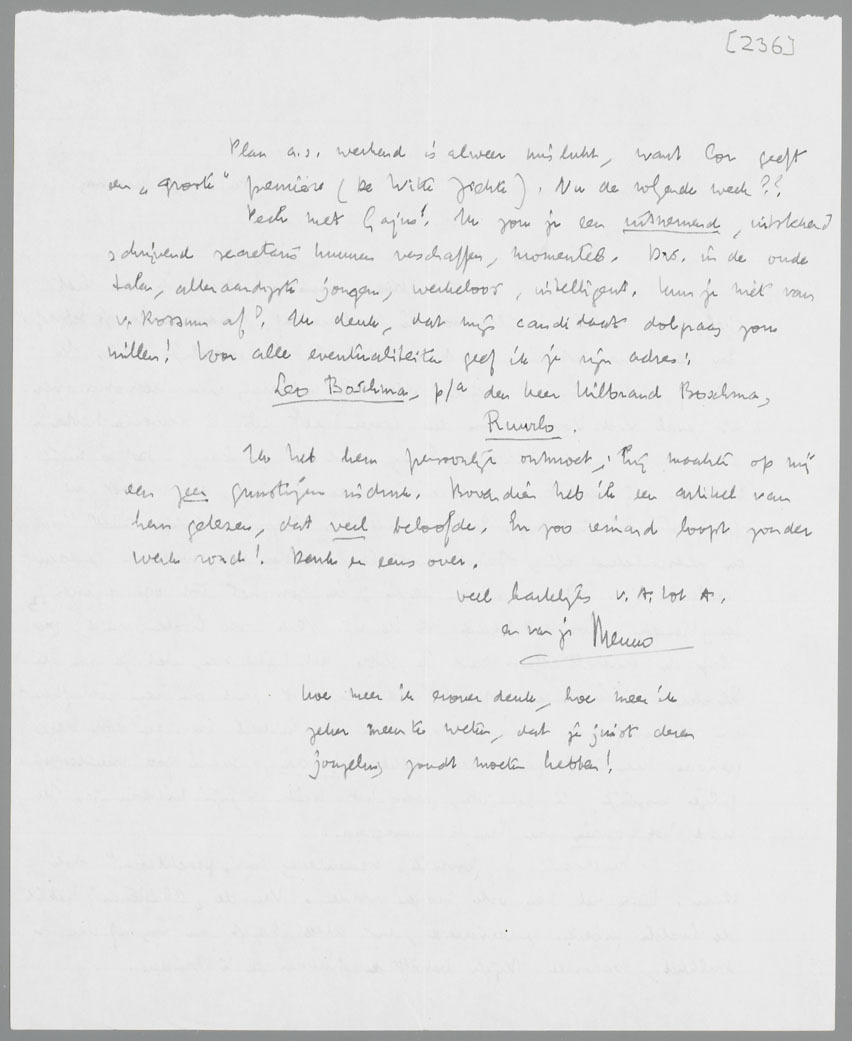 [236]
Plan a.s. weekend is alweer mislukt, want Cor geeft
een „groote" première (De Witte Ziekte). Nu de volgende week??
Pech met Gajus! Ik zou je een uitnemend, uitstekend
schrijvend secretaris kunnen verschaffen, momenteel. Drs. in de oude
talen, alleraardigste jongen, werkeloos, intelligent. Kun je niet van
v. Rossum af? Ik denk, dat mijn candidaat dolgraag zou
willen! Voor alle eventualiteiten geef ik je zijn adres:
Leo Boschma, p/a den heer Hilbrand Boschma,
Ruurlo.
Ik heb hem persoonlijk ontmoet; hij maakte op mij
een zeer gunstigen indruk. Bovendien heb ik een artikel van
hem gelezen, dat veel beloofde. En zoo iemand loopt zonder
werk rond! Denk er eens over.
veel hartelijks v. A. tot A.
en van je Menno
Hoe meer ik erover denk, hoe meer ik
zeker meen te weten, dat je juist dezen
jongeling zoudt moeten hebben!